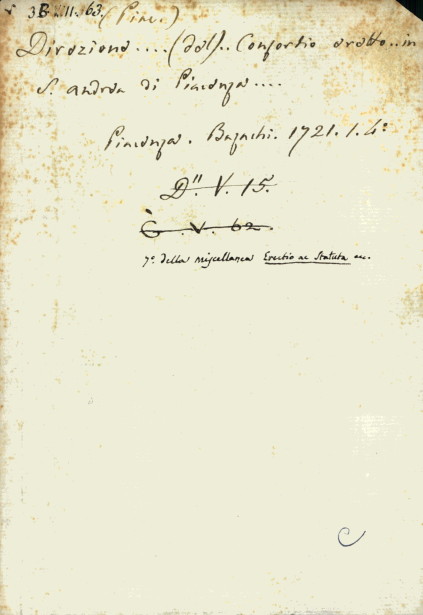 3B.VII.63. (Piac.)
Direzione .... (del).. Consortio eretto..in
S. Andrea di Piacenza ....
Piacenza. Bazachi. 1721. 1. 4º
D". V. 15.
G. V. 62.
7º della Miscellanea Erectio ac Statuta ec.
C